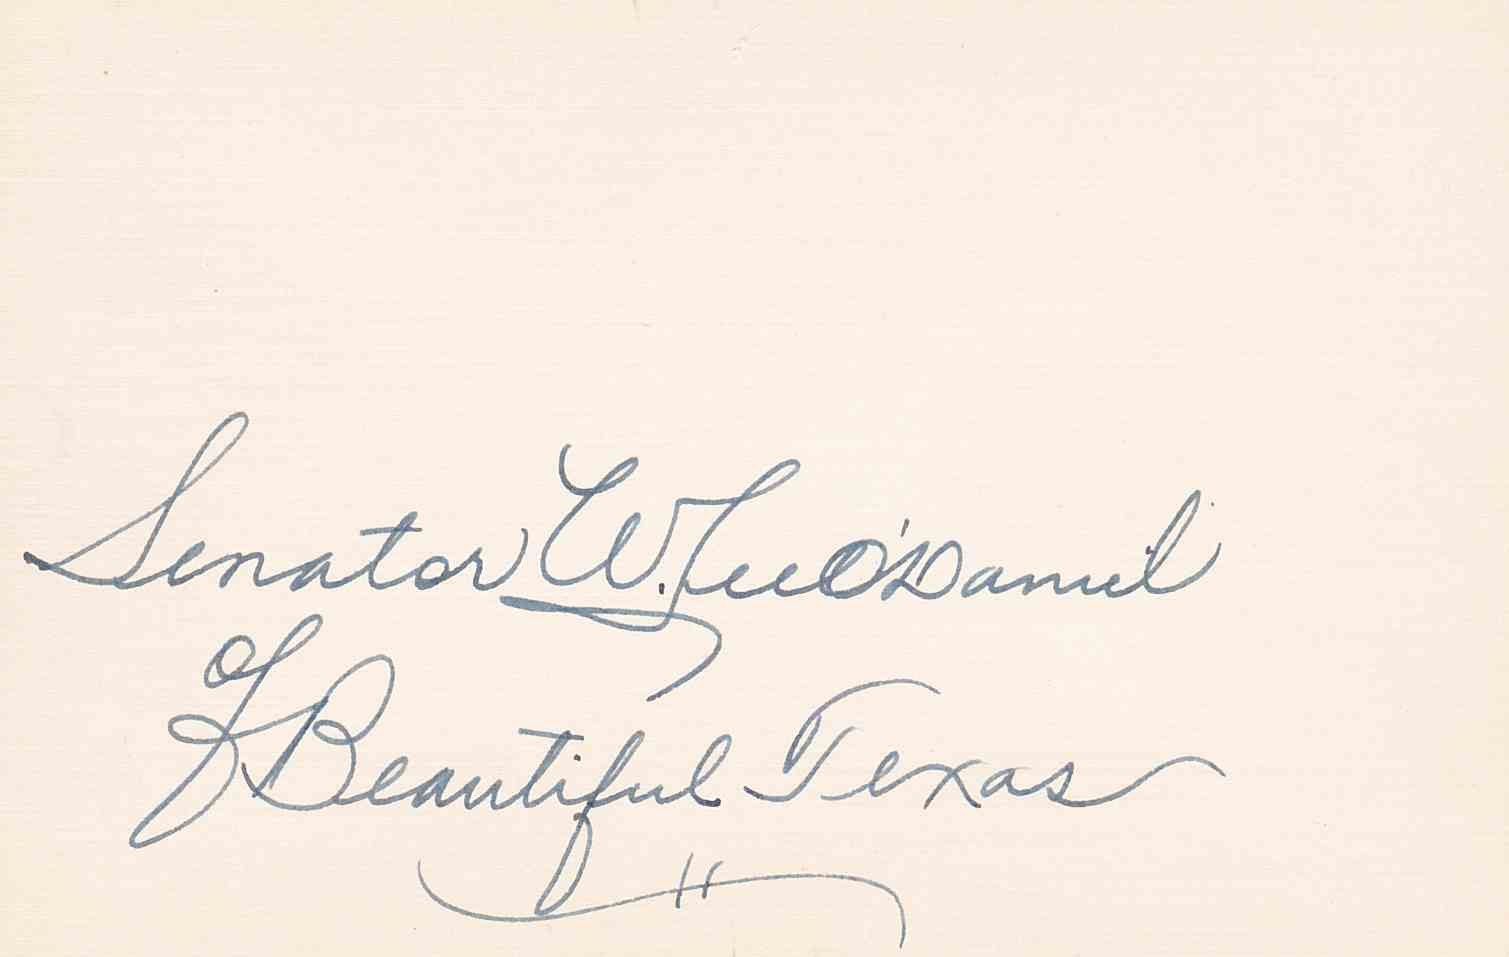 Senator W. Lee O'Daniel
of Beautiful Texas